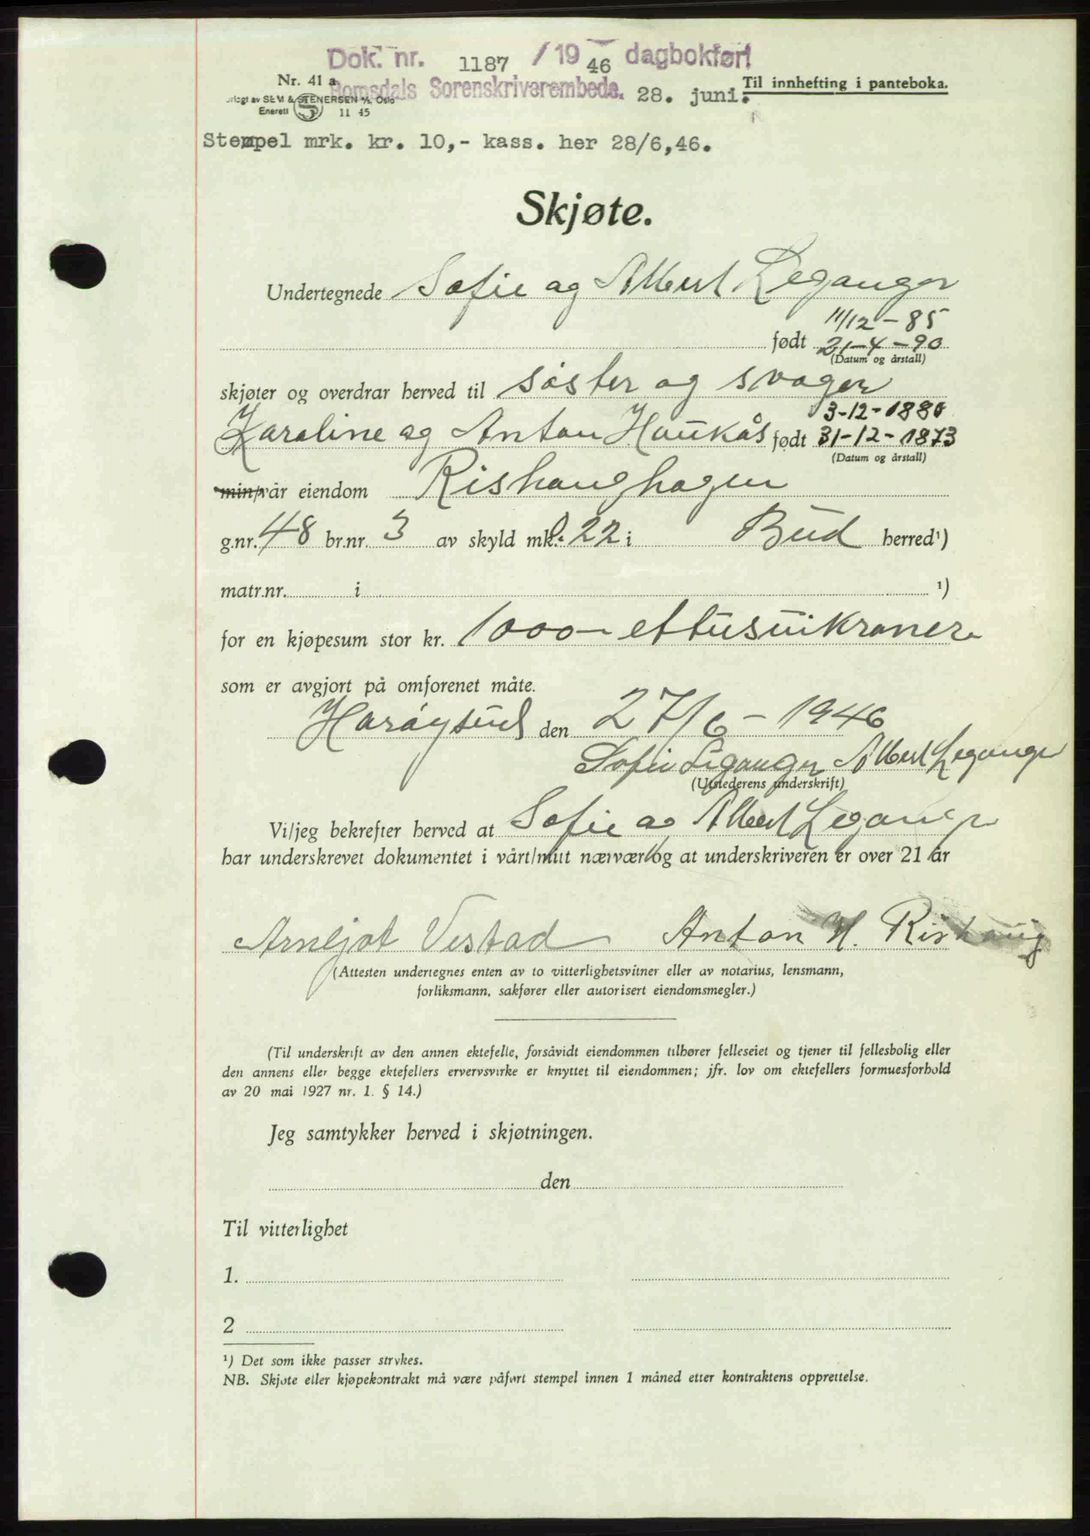 Dok. nr. 1187 / 1946 dagbokført
Nr. 41 a Romsdals Sorenskriverembede. 28. juni. Til innhefting i panteboka.
SEM & STENERSEN A/S Oslo
Enerett 11 45
Stempel mrk. kr. 10,- kass. her 28/6,46.
Skjøte.
Undertegnede Sofie og Albert Leganger
11/12 - 85
født 21-4-90
(Datum og årstall)
skjøter og overdrar herved til søster og svoger
3-12-1880
Karoline og Anton Haukås født 31-12-1873
(Datum og årstall)
min/vår eiendom Rishaughagen
g.nr. 48 br.nr. 3 av skyld mk. 0.22 i Bud herred¹)
matr.nr. i ¹)
for en kjøpesum stor kr. 1000 - ettusenkroner
som er avgjort på omforenet måte.
Harøysund den 27/6 - 1946
Sofie Leganger Albert Leganger
(Utstederens underskrift)
Vi/jeg bekrefter herved at Sofie og Albert Leganger
har underskrevet dokumentet i vårt/mitt nærvær og at underskriveren er over 21 år
Arnljot Vestad Anton H. Rishaug
(Attesten undertegnes enten av to vitterlighetsvitner eller av notarius, lensmann,
forliksmann, sakfører eller autorisert eiendomsmegler.)
(Til underskrift av den annen ektefelle, forsåvidt eiendommen tilhører felleseiet og tjener til fellesbolig eller
den annens eller begge ektefellers ervervsvirke er knyttet til eiendommen; jfr. lov om ektefellers formuesforhold
av 20 mai 1927 nr. 1. § 14.)
Jeg samtykker herved i skjøtningen.
den
Til vitterlighet
1.
2
¹) Det som ikke passer strykes.
NB. Skjøte eller kjøpekontrakt må være påført stempel innen 1 måned etter kontraktens opprettelse.